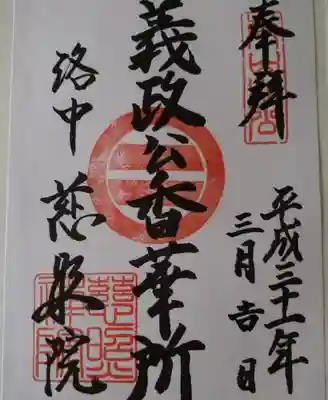 奉拝
平成三十一年
三月吉日
義政公香華所
洛中 慈照院